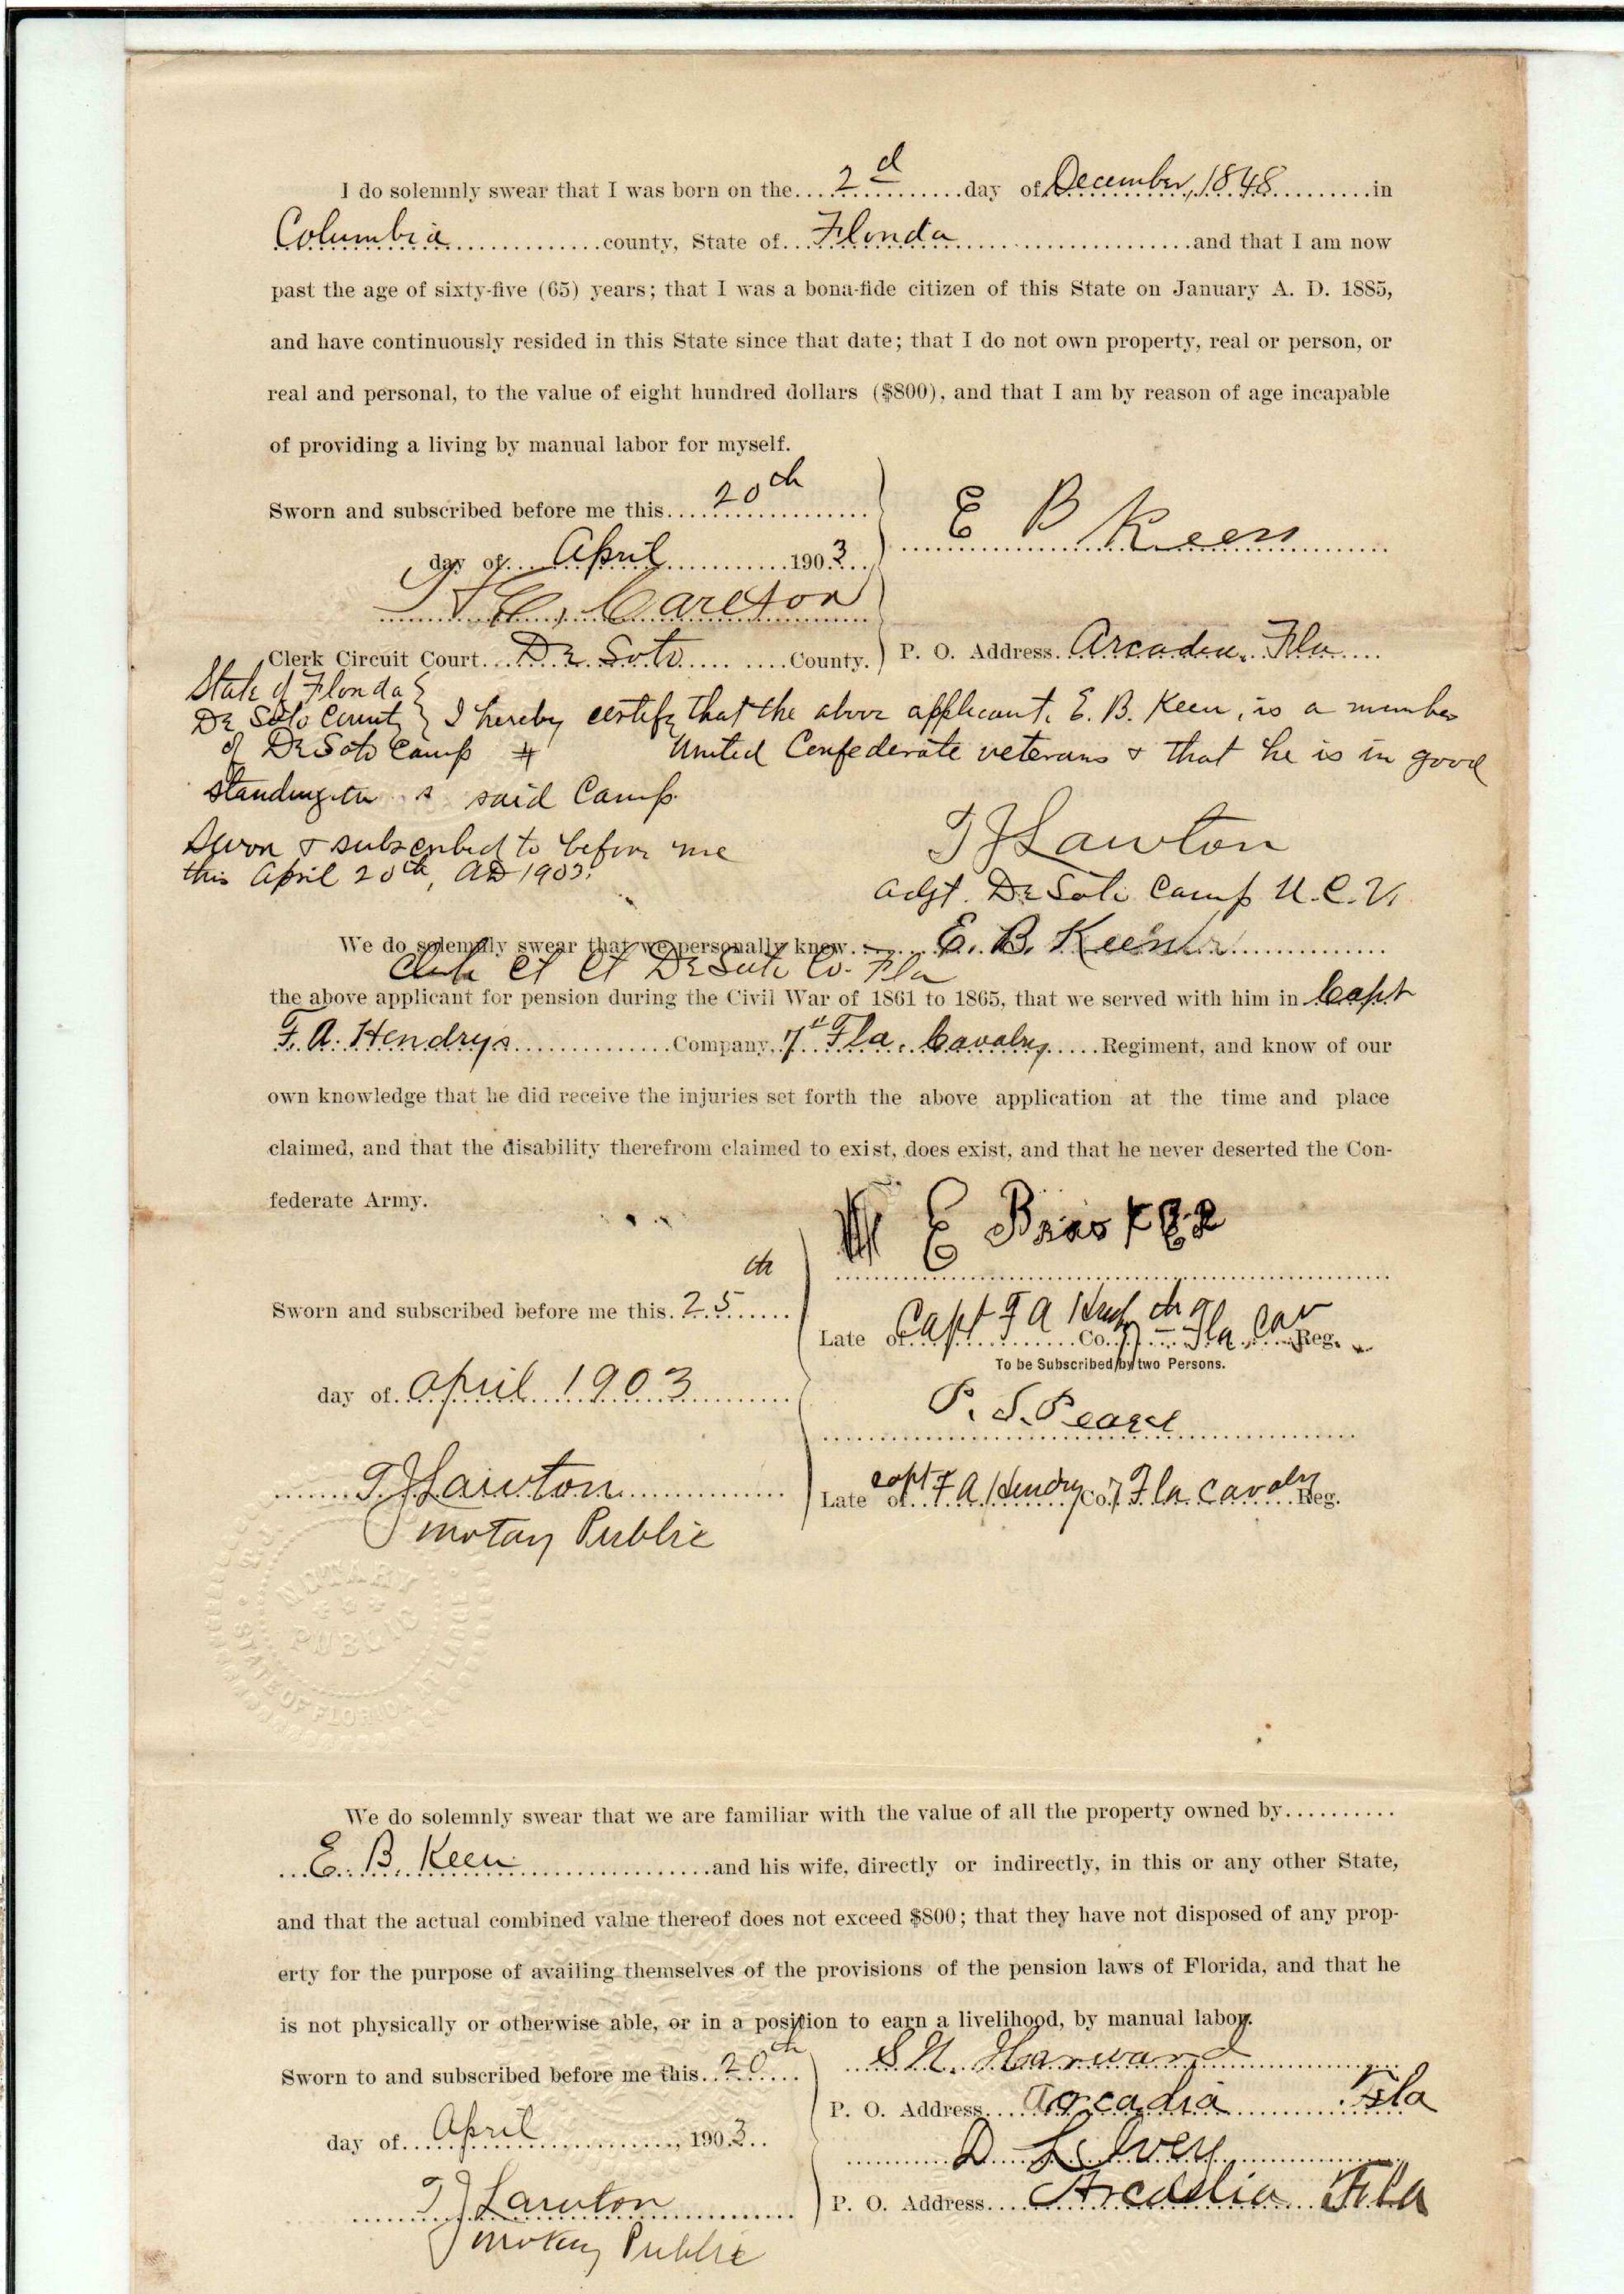 I do solemnly swear that I was born on the 2d day of December, 1848 in
Columbia county, State of Florida and that I am now
past the age of sixty-five (65) years; that I was a bona-fide citizen of this State on January A. D. 1885,
and have continuously resided in this State since that date; that I do not own property, real or person, or
real and personal, to the value of eight hundred dollars ($800), and that I am by reason of age incapable
of providing a living by manual labor for myself.
Sworn and subscribed before me this 20th
day of April 1903
E B Keen
Carlton
Clerk Circuit Court De Soto County.
P. O. Address. Arcadia, Fla
State of Florida
De Soto County I hereby certify that the above applicant, E. B. Keen, is a member
of De Soto Camp # United Confederate veterans & that he is in good
standing in said Camp.
Sworn & subscribed to before me
this April 20th, AD 1903.
T J Lawton
Adjt. De Soto Camp U. C. V.
We do solemnly swear that we personally knew E. B. Keen
Clerk Ct Ct De Soto Co. Fla
the above applicant for pension during the Civil War of 1861 to 1865, that we served with him in Capt
F. A. Hendrys Company, 7th Fla. Cavalry Regiment, and know of our
own knowledge that he did receive the injuries set forth the above application at the time and place
claimed, and that the disability therefrom claimed to exist, does exist, and that he never deserted the Con-
federate Army.
E
Sworn and subscribed before me this 25th
Late of Capt F A Co. 7th Fla Cav Reg.
To be Subscribed by two Persons.
day of April 1903
P. S. Pearce
T J Lawton
Late of Capt F A Hendry Co. 7 Fla. Cavalry Reg.
Notary Public
NOTARY
PUBLIC
STATE OF FLORIDA AT LARGE
We do solemnly swear that we are familiar with the value of all the property owned by
E. B. Keen and his wife, directly or indirectly, in this or any other State,
and that the actual combined value thereof does not exceed $800; that they have not disposed of any prop-
erty for the purpose of availing themselves of the provisions of the pension laws of Florida, and that he
is not physically or otherwise able, or in a position to earn a livelihood, by manual labor.
Sworn to and subscribed before me this 20th
Harward
P. O. Address Arcadia Fla
day of April, 1903
D L Ivey
T J Lawton
P. O. Address Arcadia Fla
Notary Public